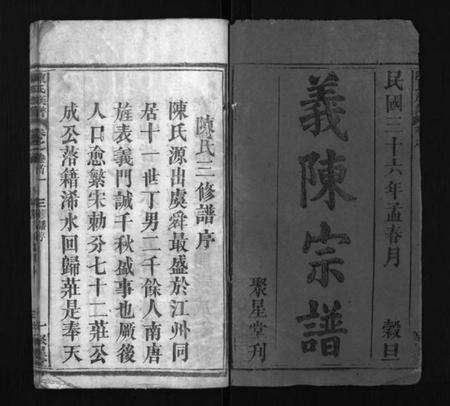 民國三十六年孟春月 榖旦
義陳宗譜
聚星堂刊
陳氏三修譜序
陳氏源出處舜最盛於江州同
居十一世丁男二千餘人南唐
旌表義門誠千秋盛事也厥後
人口愈繁宋勅分七十二莊公
成公落籍浠水回歸莊是奉天